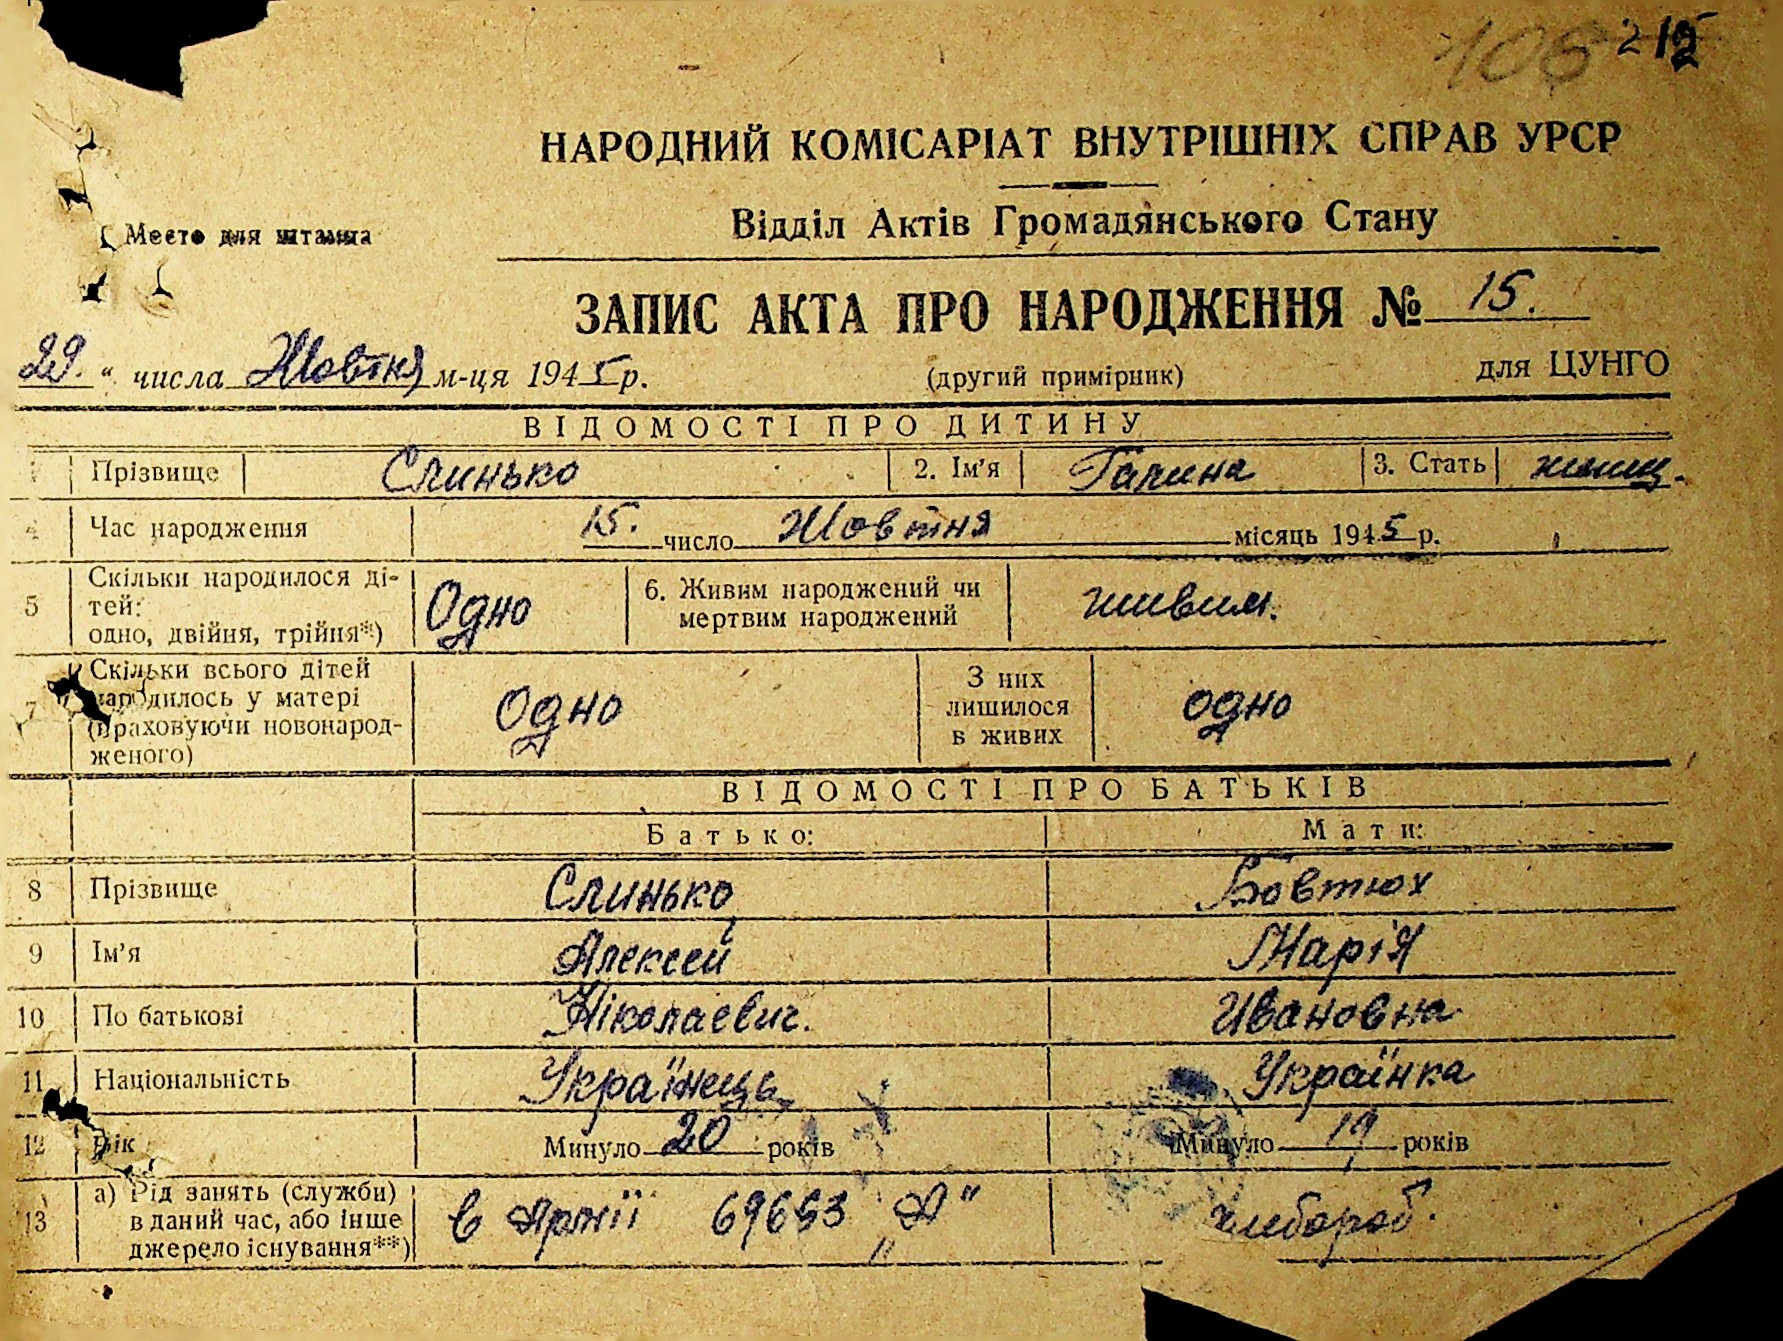 106 212
НАРОДНИЙ КОМІСАРІАТ ВНУТРІШНІХ СПРАВ УРСР
Відділ Актів Громадянського Стану
Место для штампа
ЗАПИС АКТА ПРО НАРОДЖЕННЯ № 15.
29. " числа Жовтня м-ця 1945 р. (другий примірник) для ЦУНГО
ВІДОМОСТІ ПРО ДИТИНУ
Прізвище Слинько 2. Ім'я Галина 3. Стать жінищ.
4 Час народження 15. число Жовтня місяць 1945 р.
5 Скільки народилося ді-
тей:
одно, двійня, трійня*) Одно 6. Живим народжений чи
мертвим народжений живим.
7 Скільки всього дітей
народилось у матері
(враховуючи новонарод-
женого) Одно З них
лишилося
в живих одно
ВІДОМОСТІ ПРО БАТЬКІВ
Батько: Мати:
8 Прізвище Слинько Бовтюх
9 Ім'я Алексей Марія
10 По батькові Ніколаевич. Ивановна
11 Національність Українець Українка
12 Вік Минуло 20 років Минуло 19 років
13 а) Рід занять (служби)
в даний час, або інше
джерело існування**) в Армії 69653 „А" хлебороб.